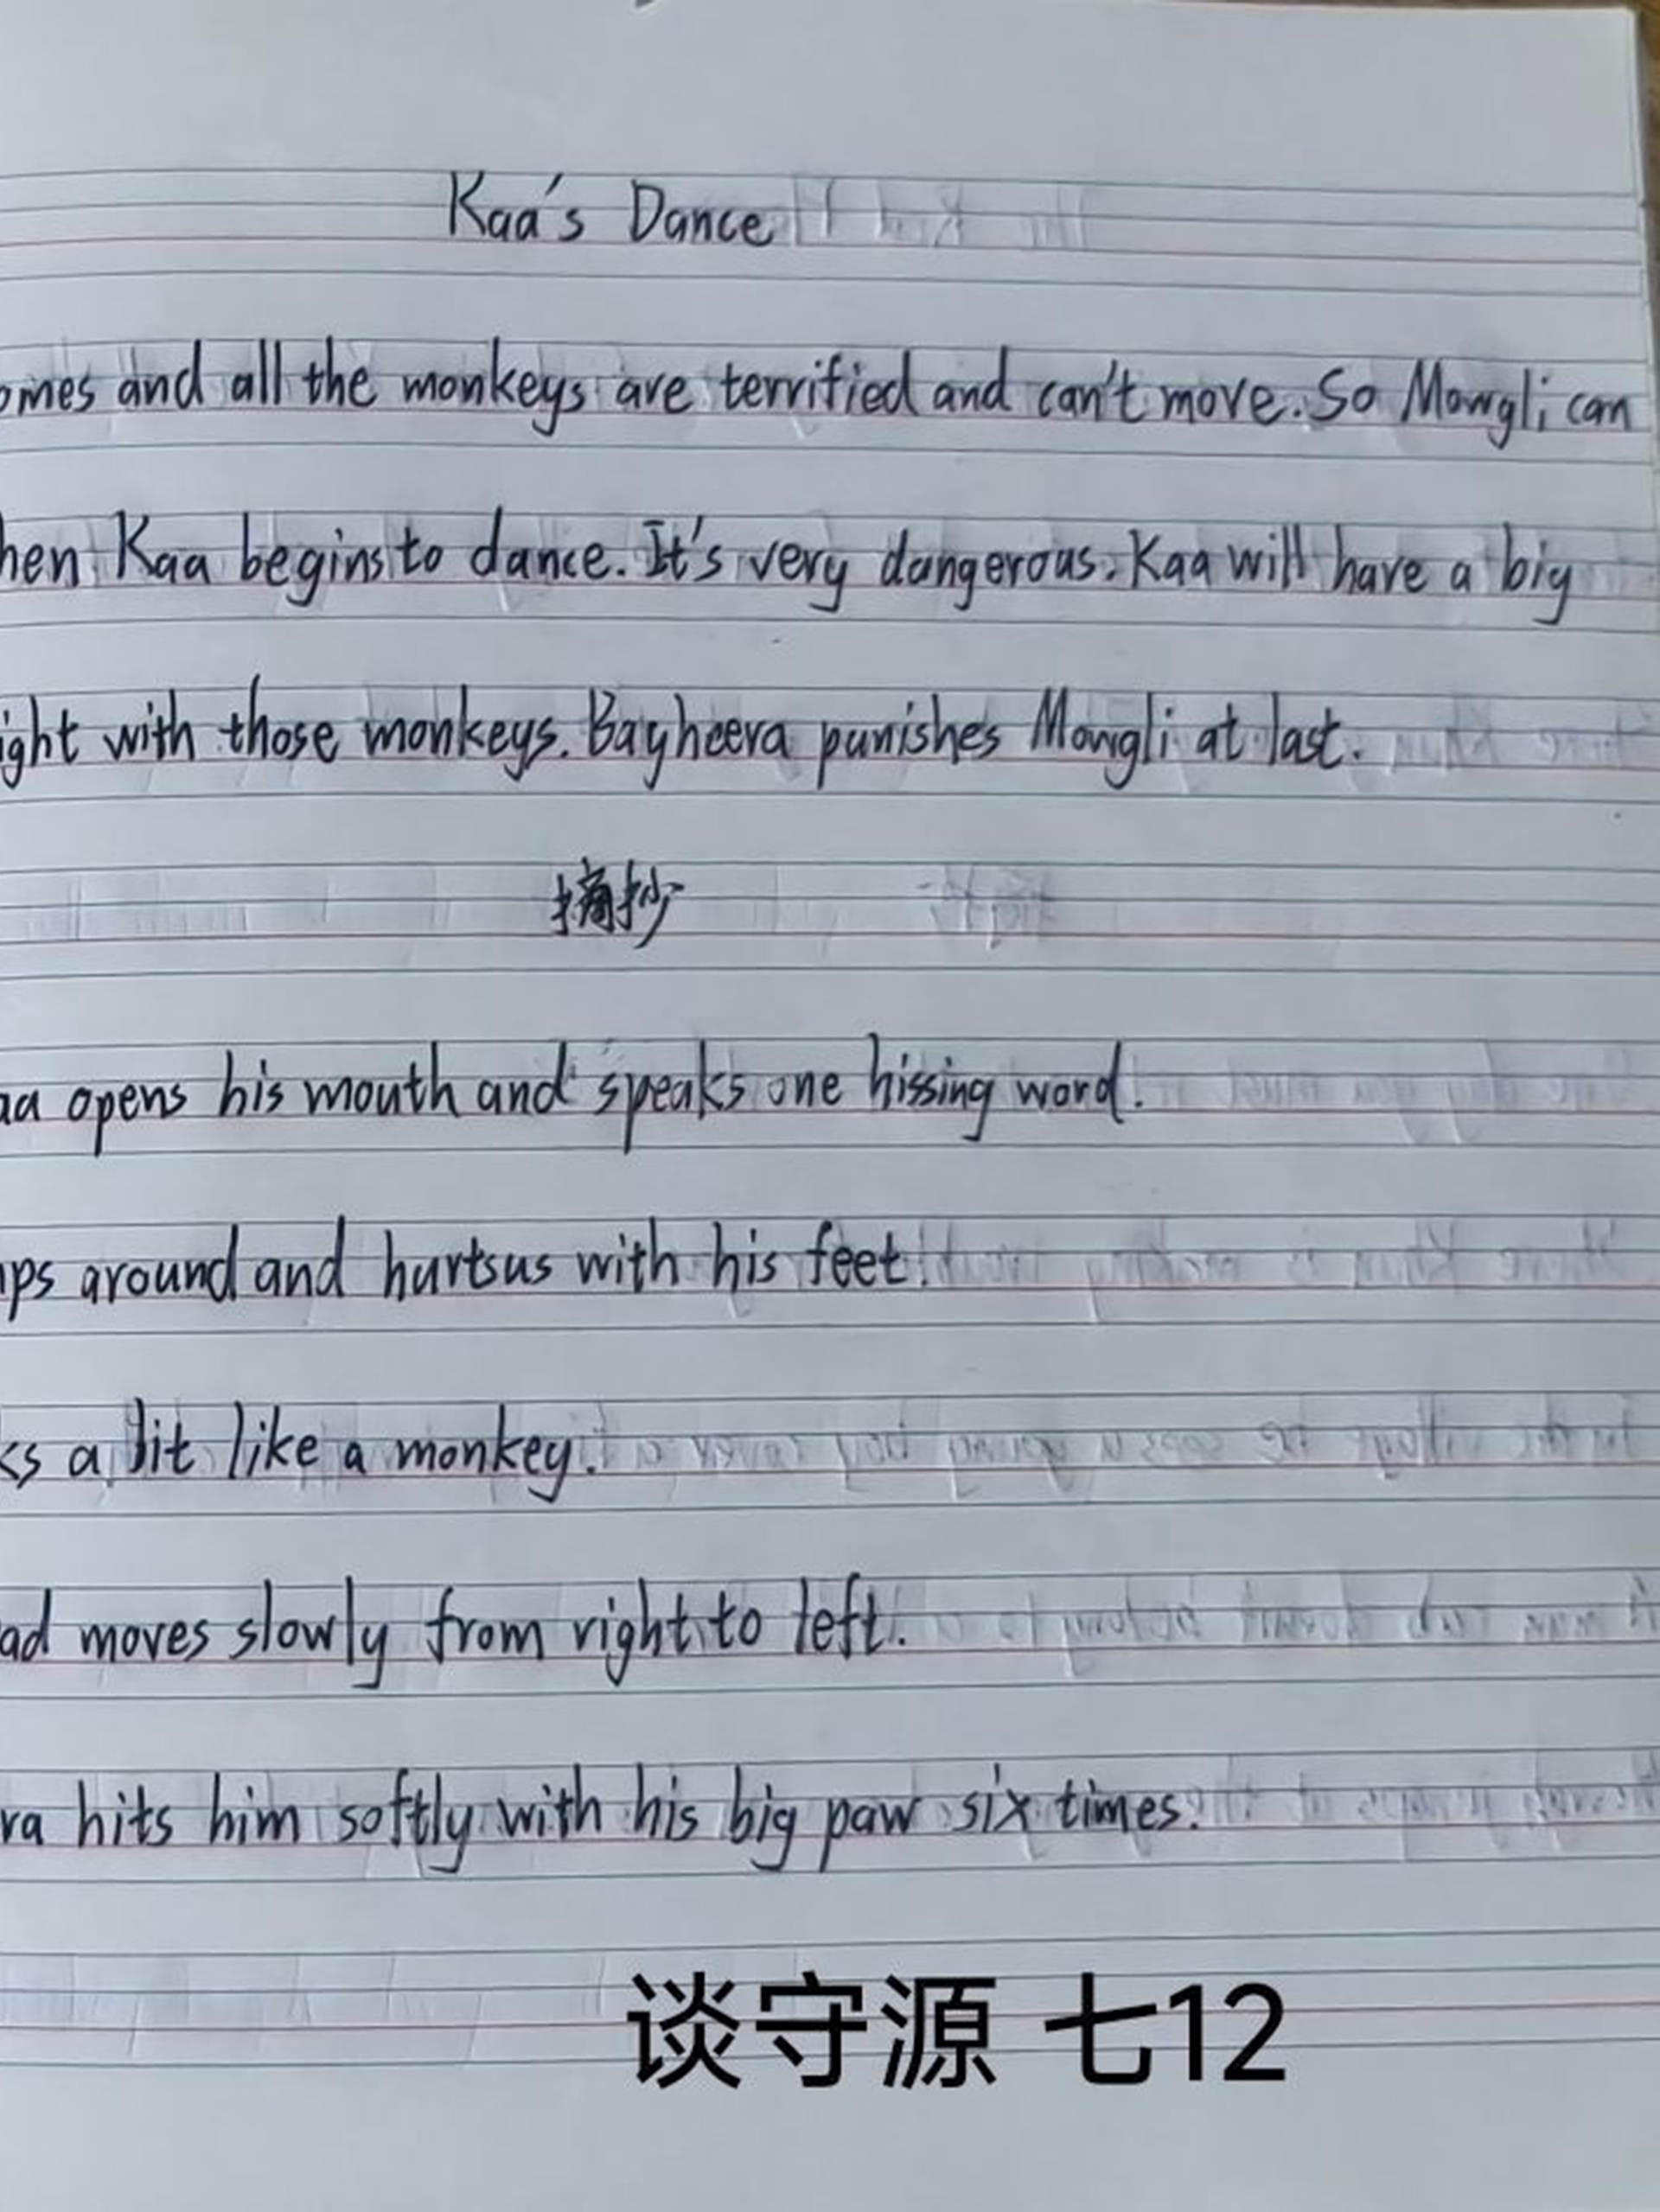 Kaa's Dance
omes and all the monkeys are terrified and can't move. So Mowgli can
hen Kaa begins to dance. It's very dangerous. Kaa will have a big
ight with those monkeys. Bagheera punishes Mowgli at last.
摘抄
aa opens his mouth and speaks one hissing word.
ps around and hurtsus with his feet!
ks a bit like a monkey.
ad moves slowly from right to left.
ra hits him softly with his big paw six times.
谈守源 七12